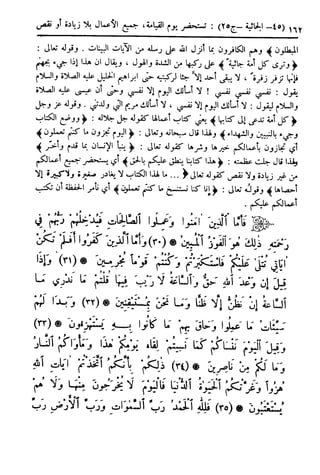 ١٦٢ (٤٥- الجاثية - ج٢٥) : نستحضر يوم القيامة، جميع الأعمال بلا زيادة أو نقص
المبطلون﴾ وهم الكافرون بما أنزل الله على رسله من الآيات البينات. وقوله تعالى :
﴿وترى كل أمة جاثية﴾ على ركبها من الشدة والهول، ويقال ان هذا إذا جيء بجهنم
فإنها تزفر زفرة لا يبقى أحد إلا جثا لركبتيه حتى ابراهيم الخليل عليه الصلاة والسلام
يقول : نفسي نفسي نفسي ! لا أسألك اليوم إلا نفسي وحتى أن عيسى عليه الصلاة
والسلام ليقول : لا أسألك اليوم إلا نفسي، لا أسألك مريم التي ولدتني. وقوله عز وجل
﴿كل أمة تدعى إلى كتابها﴾ يعني كتاب أعمالها كقوله جل جلاله : ﴿ووضع الكتاب
وجيء بالنبيين والشهداء﴾ ولهذا قال سبحانه وتعالى : ﴿اليوم تجزون ما كنتم تعملون﴾
أي تجازون بأعمالكم خيرها وشرها كقوله تعالى : ﴿ينبأ الإنسان بما قدم وأخر﴾
ولهذا قال جلت عظمته : ﴿هذا كتابنا ينطق عليكم بالحق﴾ أي يستحضر جميع أعمالكم
من غير زيادة ولا نقص كقوله تعالى ﴿... ما لهذا الكتاب لا يغادر صغيرة ولا كبيرة إلا
أحصاها﴾ وقوله تعالى : ﴿إنا كنا نستنسخ ما كنتم تعملون﴾ أي نأمر الحفظة أن تكتب
أعمالكم عليكم.
فَأَمَّا الَّذِينَ آمَنُوا وَعَمِلُوا الصَّالِحَاتِ فَيُدْخِلُهُمْ رَبُّهُمْ فِي
رَحْمَتِهِ ذَلِكَ هُوَ الْفَوْزُ الْمُبِينُ (٣٠) وَأَمَّا الَّذِينَ كَفَرُوا أَفَلَمْ تَكُنْ
آيَاتِي تُتْلَى عَلَيْكُمْ فَاسْتَكْبَرْتُمْ وَكُنْتُمْ قَوْمًا مُجْرِمِينَ (٣١) وَإِذَا
قِيلَ إِنَّ وَعْدَ اللَّهِ حَقٌّ وَالسَّاعَةُ لَا رَيْبَ فِيهَا قُلْتُمْ مَا نَدْرِي مَا
السَّاعَةُ إِنْ نَظُنُّ إِلَّا ظَنًّا وَمَا نَحْنُ بِمُسْتَيْقِنِينَ (٣٢) وَبَدَا لَهُمْ
سَيِّئَاتُ مَا عَمِلُوا وَحَاقَ بِهِمْ مَا كَانُوا بِهِ يَسْتَهْزِئُونَ (٣٣)
وَقِيلَ الْيَوْمَ نَنْسَاكُمْ كَمَا نَسِيتُمْ لِقَاءَ يَوْمِكُمْ هَذَا وَمَأْوَاكُمُ النَّارُ
وَمَا لَكُمْ مِنْ نَاصِرِينَ (٣٤) ذَلِكُمْ بِأَنَّكُمُ اتَّخَذْتُمْ آيَاتِ اللَّهِ
هُزُوًا وَغَرَّتْكُمُ الْحَيَاةُ الدُّنْيَا فَالْيَوْمَ لَا يُخْرَجُونَ مِنْهَا وَلَا هُمْ
يُسْتَعْتَبُونَ (٣٥) فَلِلَّهِ الْحَمْدُ رَبِّ السَّمَوَاتِ وَرَبِّ الْأَرْضِ رَبِّ